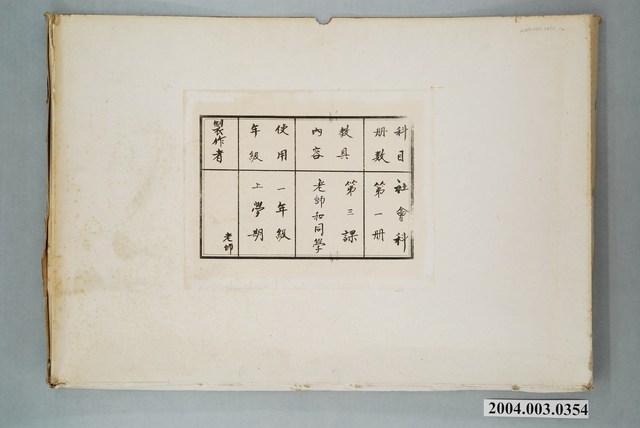 科目 社會科
冊數 第一冊
教具 第三課
內容 老師和同學
使用 一年級
年級 上學期
製作者 老師
2004.003.0354